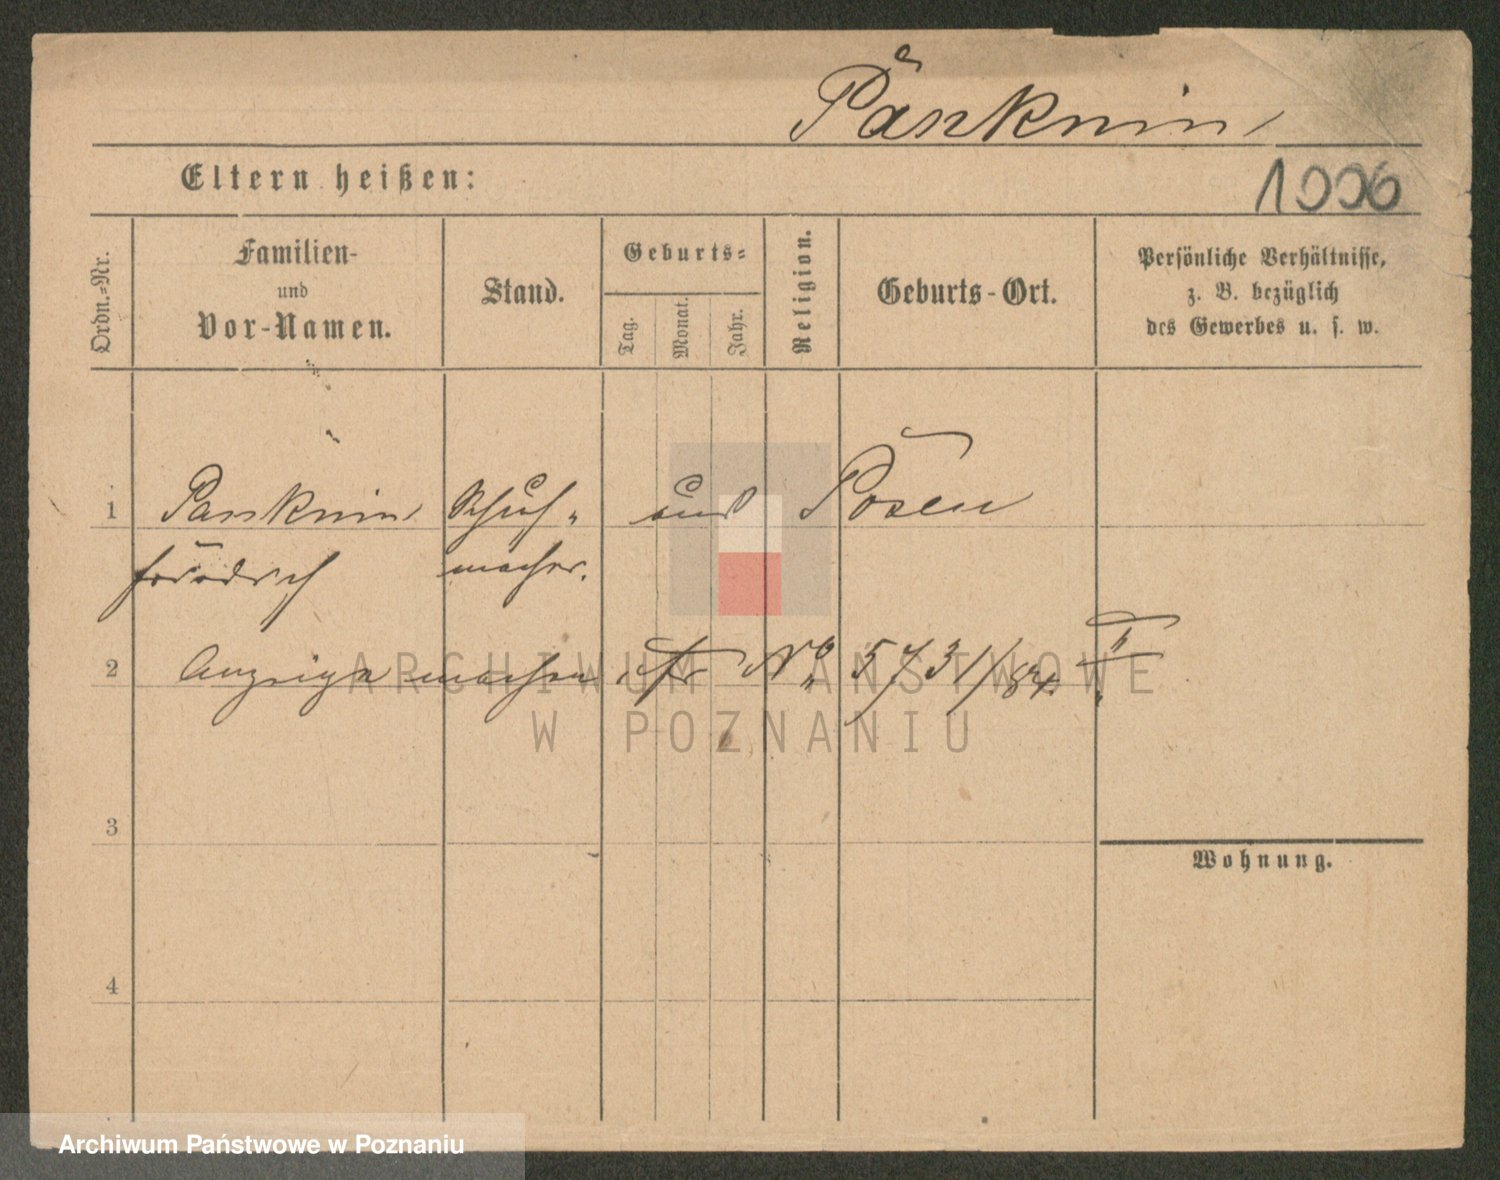 Pänknin
Eltern heißen:
1006
Ordn.-Nr.
Familien-
und
Vor-Namen.
Stand.
Geburts-
Tag.
Monat.
Jahr.
Religion.
Geburts-Ort.
Persönliche Verhältnisse,
z. B. bezüglich
des Gewerbes u. s. w.
1 Panknin Schuh- aus Posen
Friedrich macher.
2 Anzeige machen cfr No 5731/84 II
ARCHIWUM PAŃSTWOWE
W POZNANIU
3
Wohnung.
4
Archiwum Państwowe w Poznaniu